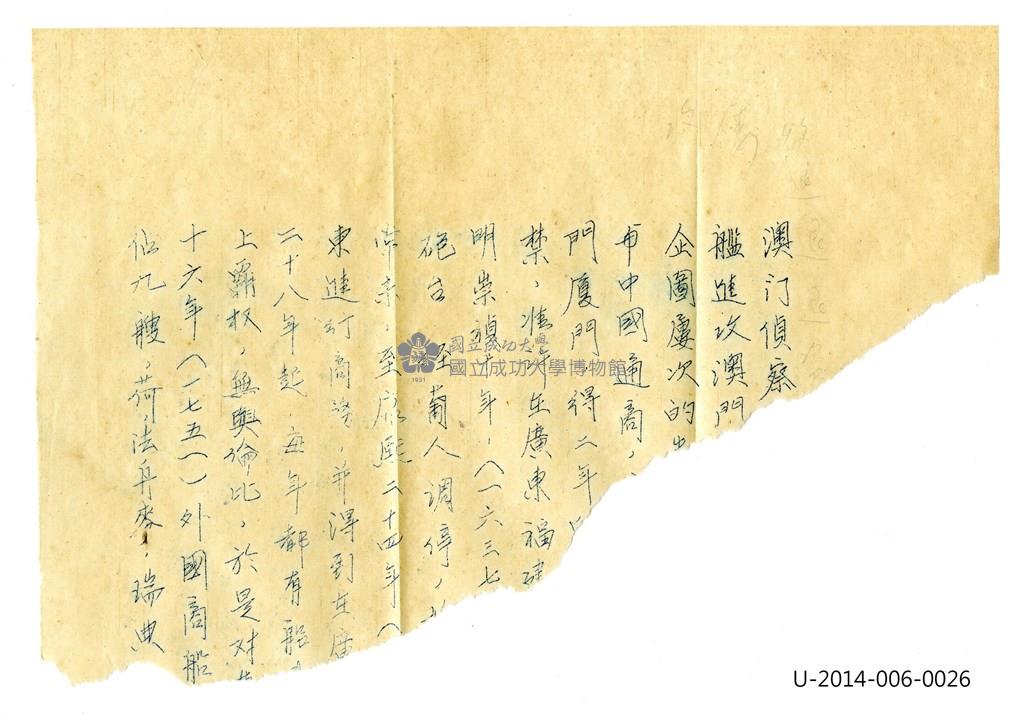 澳门偵察
艦進攻澳門
企圖屢次的
市中國通商，
門厦門，得二年
禁，准許在廣東福建
明崇禎十年，(一六三七
砲台 经葡人调停，
未，至康熙二十四年(
東進行商務，并得到在廣
二十八年起，每年都有船
上霸权，無與倫比，於是对
十六年(一七五一)外國商船
佔九艘，荷，法，丹麥，瑞典
國立成功大學
國立成功大學博物館
1931
U-2014-006-0026